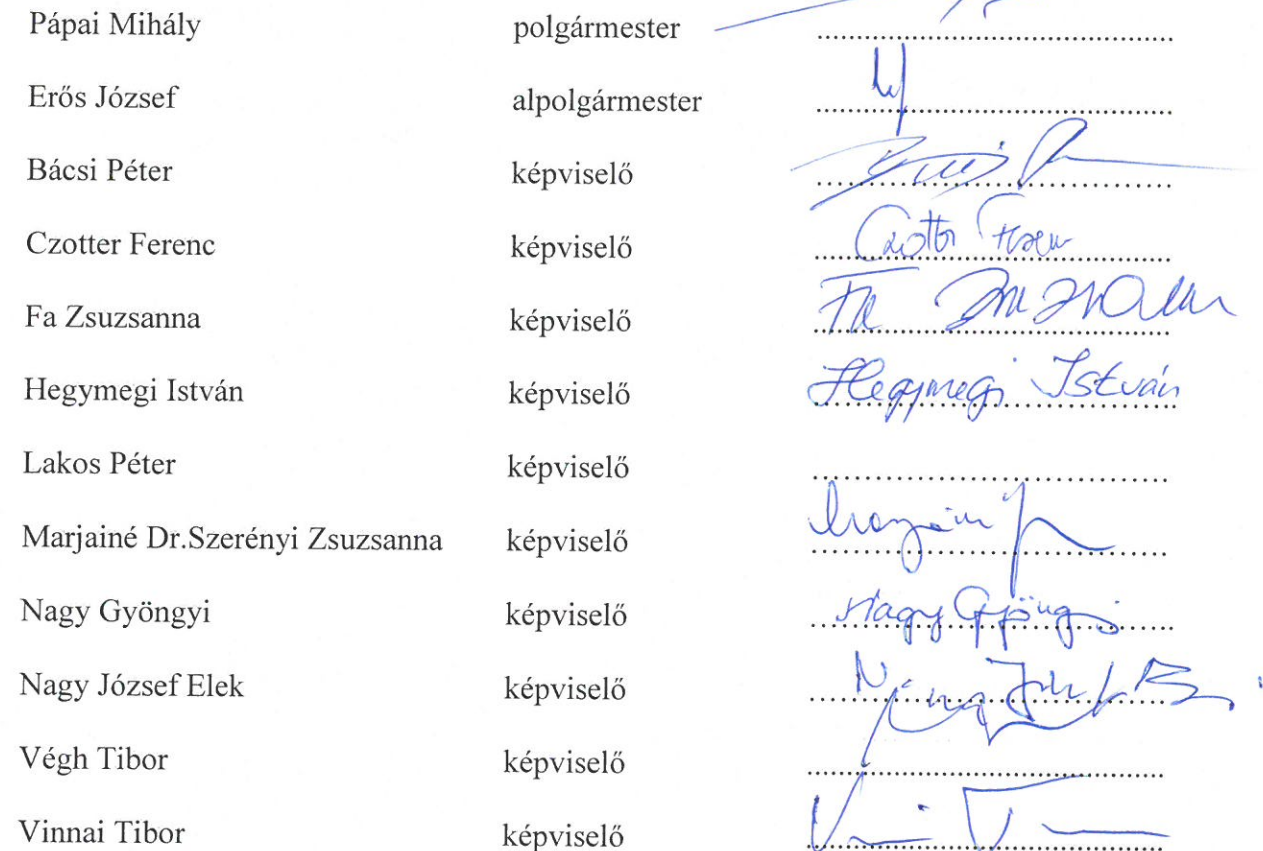 Pápai Mihály polgármester
Erős József alpolgármester
Bácsi Péter képviselő
Czotter Ferenc képviselő Czotter Ferenc
Fa Zsuzsanna képviselő Fa Zsuzsanna
Hegymegi István képviselő Hegymegi István
Lakos Péter képviselő
Marjainé Dr.Szerényi Zsuzsanna képviselő
Nagy Gyöngyi képviselő Nagy Gyöngyi
Nagy József Elek képviselő
Végh Tibor képviselő
Vinnai Tibor képviselő